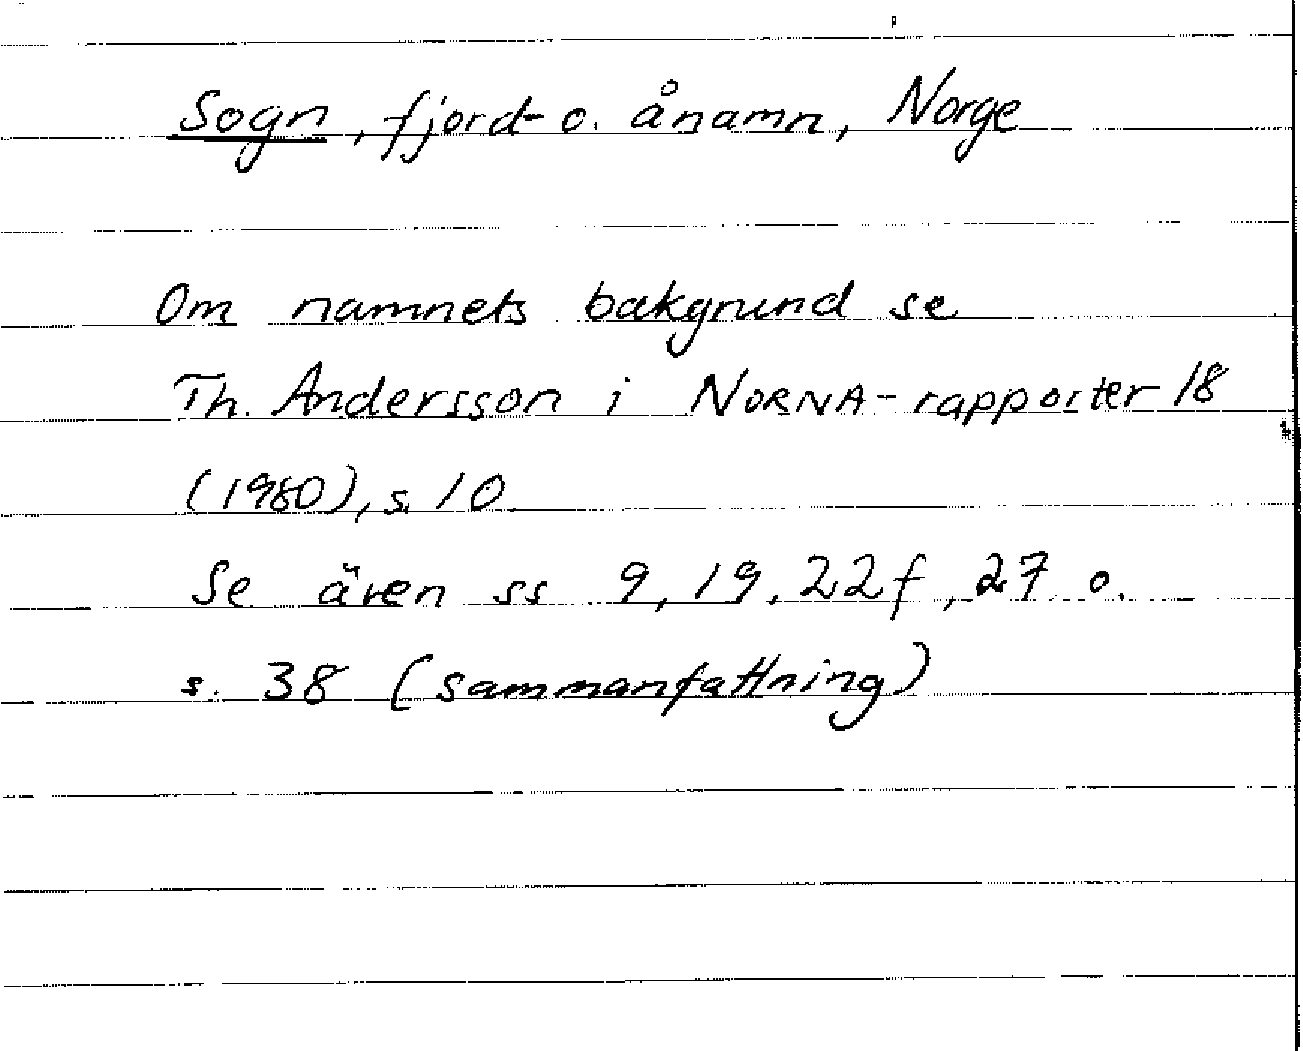 Sogn, fjord- o. ånamn, Norge
Om namnets bakgrund se
Th. Andersson i NORNA-rapporter 18
(1980), s. 10
Se även ss 9, 19, 22f, 27 o.
s. 38 (sammanfattning)